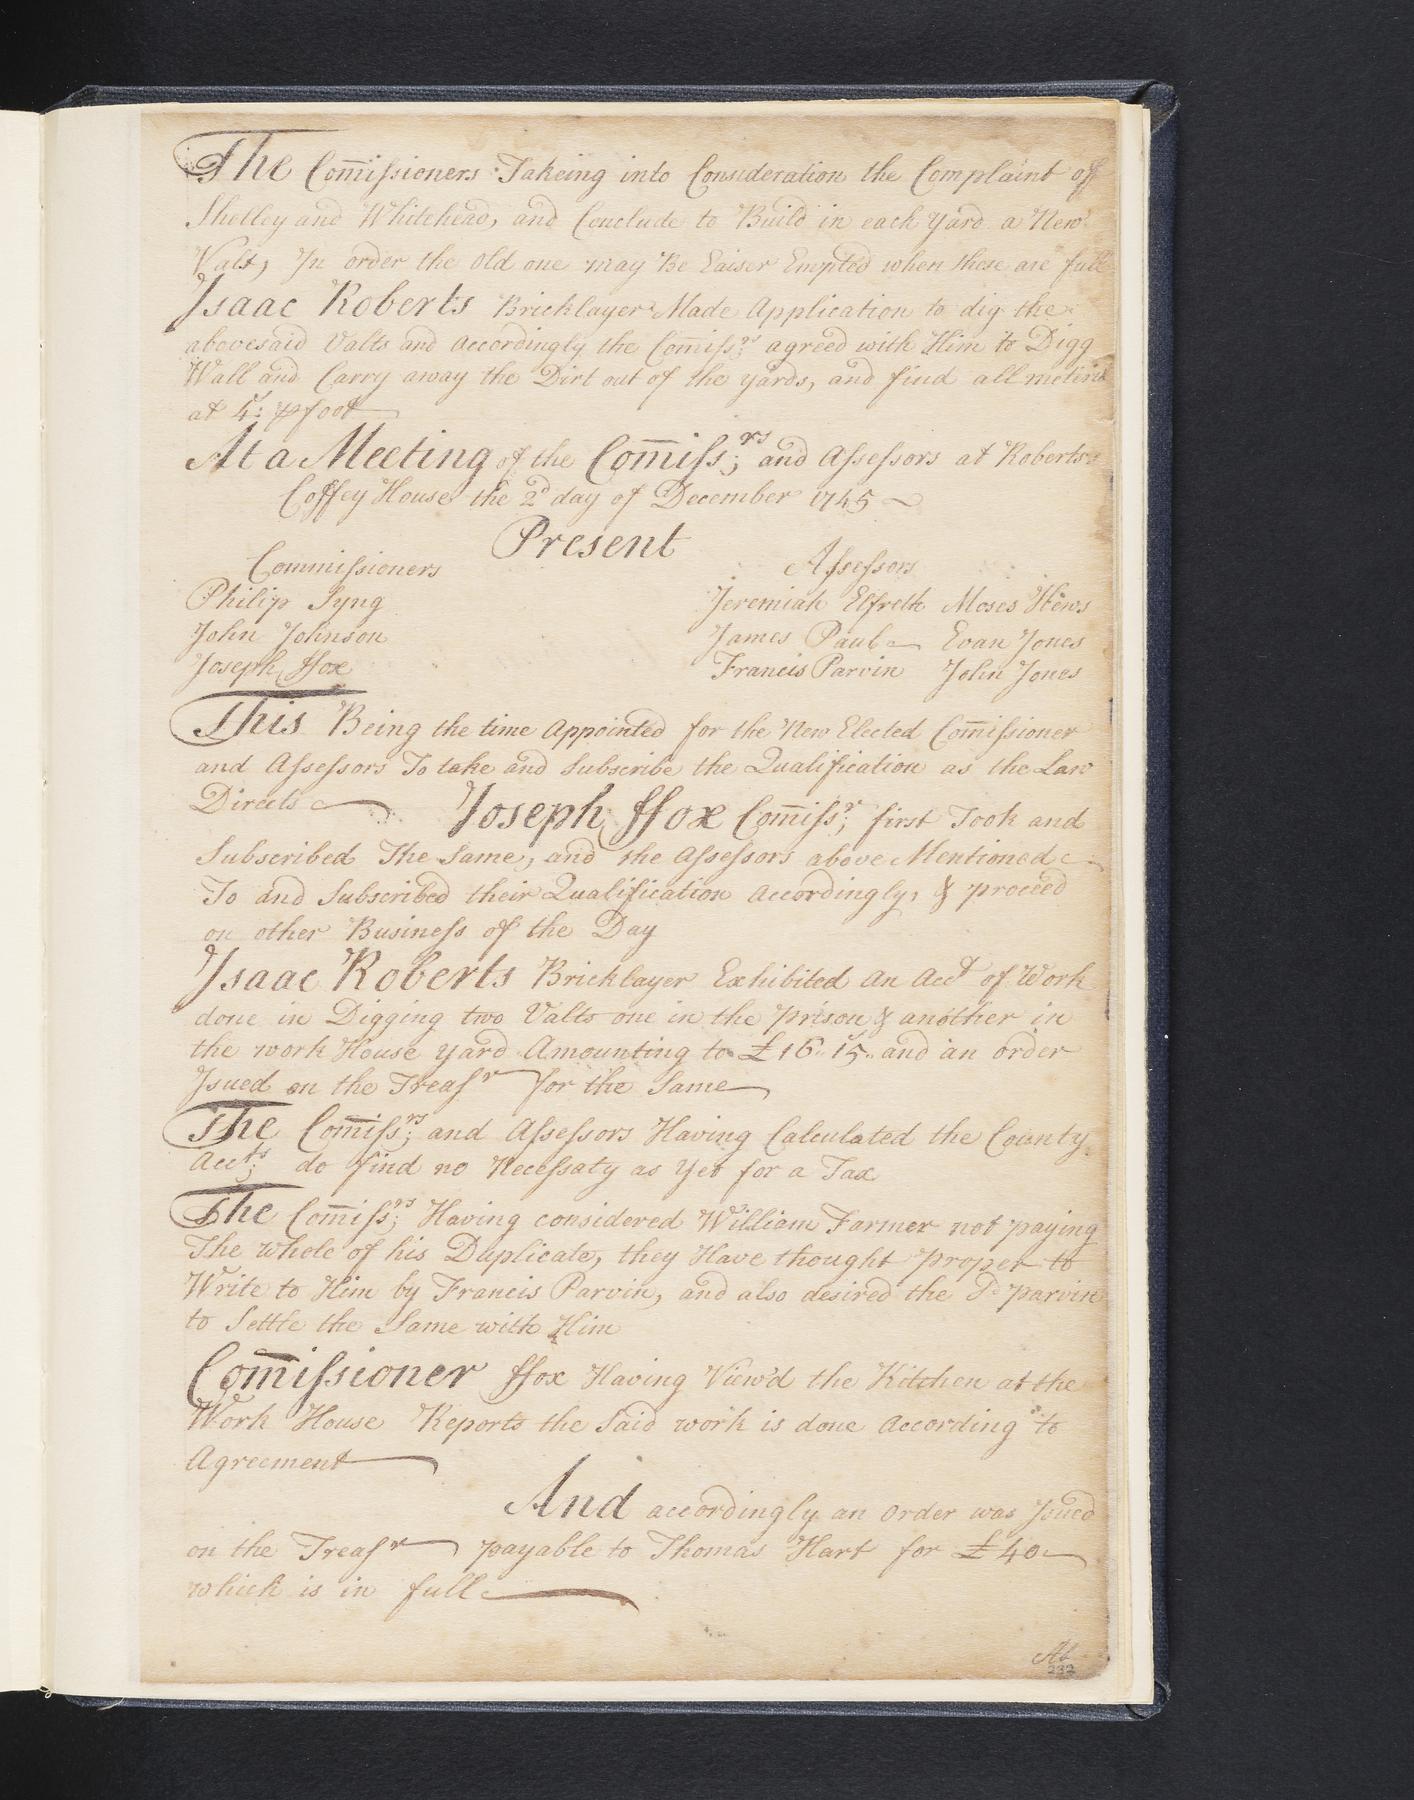 The Com̄issioners Takeing into Consideration the Complaint off
Shelley and Whitehead, and Conclude to Build in each Yard a New
Valt, In order the old one may Be Eaiser Empted when these are full
Isaac Roberts Bricklayer Made Application to dig the
abovesaid Valts and Accordingly the Com̄iss:rs agreed with Him to Digg
Wall and Carry away the Dirt out of the yards, and find all
at 4s: ⅌ foot
At a Meeting of the Com̄iss;rs and Assessors at Roberts's
Coffey House the 2d day of December 1745
Present
Commissioners
Assessors
Philip Syng
Jeremiah Elfreth Moses Hews
John Johnson
James Paul Evan Jones
Joseph ffox
Francis Parvin John Jones
This Being the time Appointed for the New Elected Com̄issioner
and Assessors To take and Subscribe the Qualification as the Law
Directs Joseph ffox Com̄iss;r first Took and
Subscribed The Same, and the Assessors above Mentioned
To and Subscribed their Qualification Accordingly, & proceed
on other Business of the Day
Isaac Roberts Bricklayer Exhibited an Acct of Work
done in Digging two Valts one in the prison & another in
the work House yard Amounting to £16"15" and an order
Isued on the Treasr for the Same
The Com̄iss;rs and Assessors Having Calculated the County
Acc;ts do find no Necessaty as Yet for a Tax
The Com̄iss;rs Having considered William Farmer not paying
The whole of his Duplicate, they Have thought proper to
Write to Him by Francis Parvin, and also desired the Sd parvin
to Settle the Same with Him
Com̄issioner ffox Having View'd the Kitchen at the
Work House Reports the Said work is done According to
Agreement
And accordingly an order was Isued
on the Treasr payable to Thomas Hart for £40
which is in full
At
232